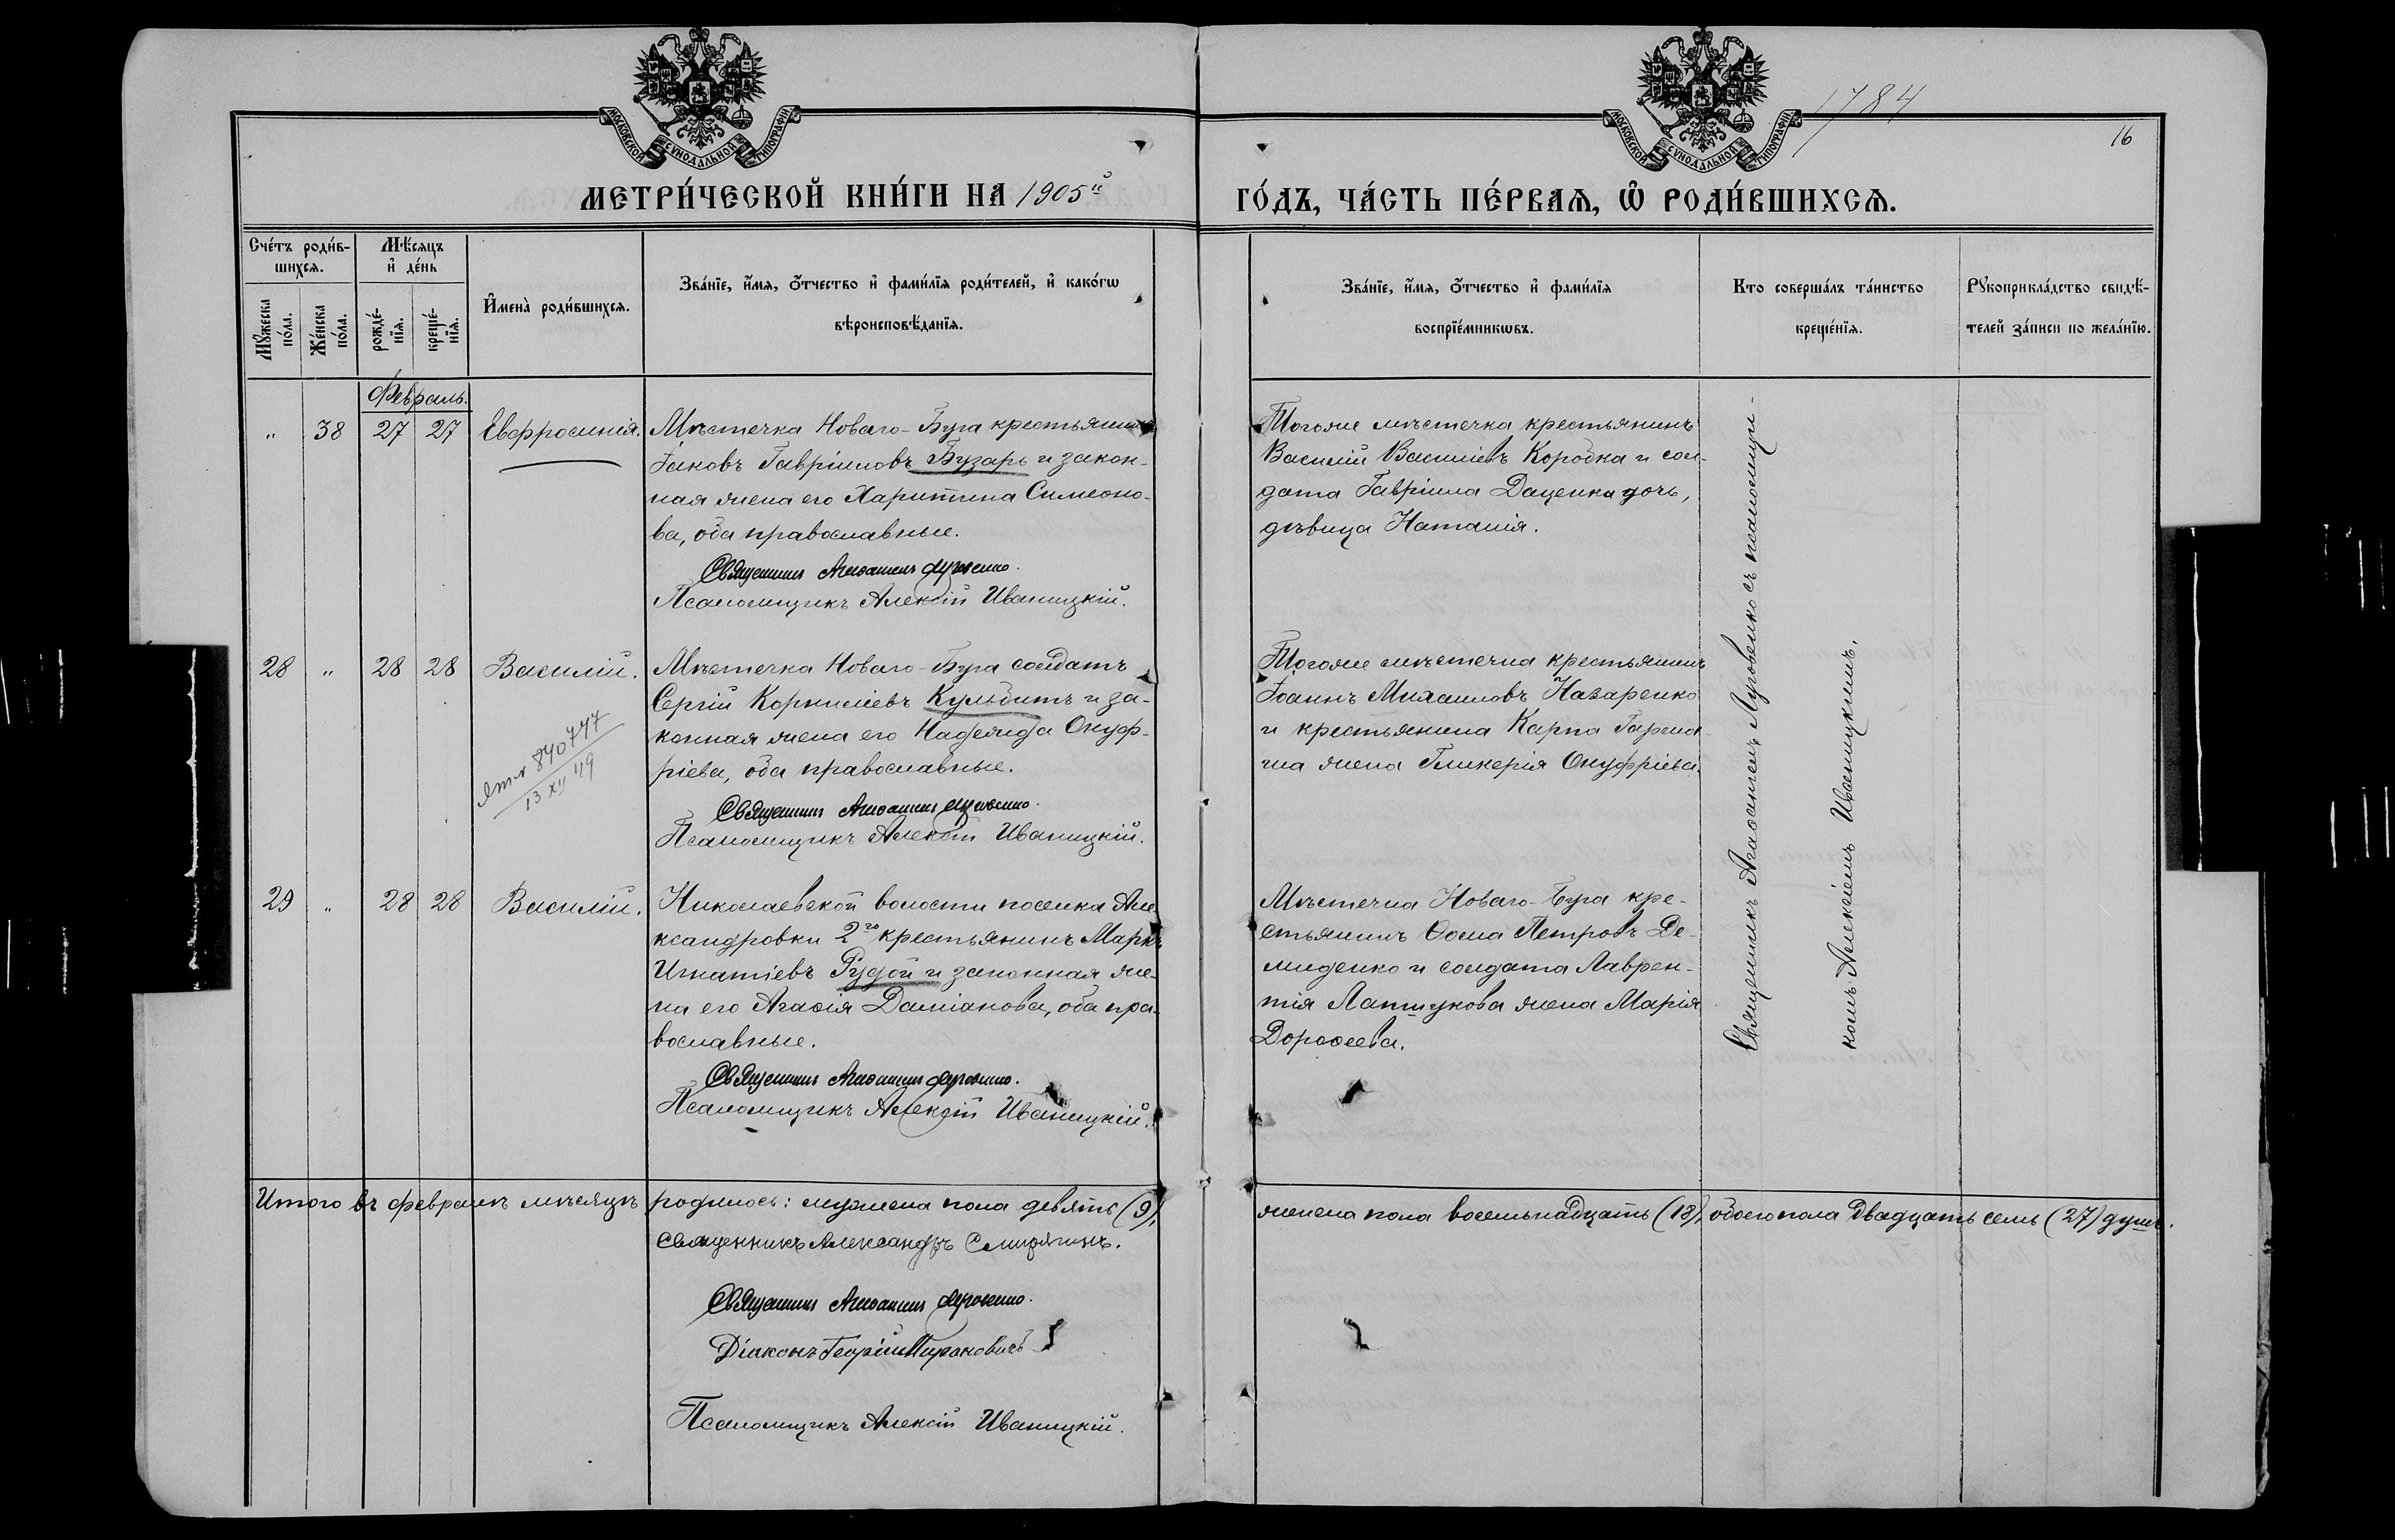 МОСКОВСКОЙ СѴНОДАЛЬНОЙ ТИПОГРАФІИ
МОСКОВСКОЙ СѴНОДАЛЬНОЙ ТИПОГРАФІИ
1784
16
МЕТРИ́ЧЕСКОЙ КНИ́ГИ НА 1905й
ГО́ДЪ, ЧА́СТЬ ПЕ́РВАѦ, Ѡ҆ РОДИ́ВШИХСѦ.
Сче́тъ роди́в-
шихсѧ.
Мꙋ́жеска
по́ла.
Же́нска
по́ла.
Мѣ́сяцъ
и҆ де́нь
рожде́-
нїѧ.
креще́-
нїѧ.
И҆мена̀ роди́вшихсѧ.
Зва́нїе, и҆́мѧ, ѻ҆́тчество и҆ фами́лїѧ роди́телей, и҆ како́гѡ
вѣроисповѣ́данїѧ.
Зва́нїе, и҆́мѧ, ѻ҆́тчество и҆ фами́лїѧ
воспрїе́мникѡвъ.
Кто соверша́лъ та́инство
креще́нїѧ.
Рꙋкоприкла́дство свидѣ́-
телей за́писи по жела́нїю.
Февраль.
„ 38 27 27 Евфросинія.
Мѣстечка Новаго-Буга крестьянинъ
Іаковъ Гавріиловъ Бузарь и закон-
ная жена его Харитина Симеоно-
ва, оба православные.
Священникъ Агаѳангелъ Луговенко.
Псаломщикъ Алексій Иваницкій.
Тогоже мѣстечка крестьянинъ
Василій Василіевъ Коробка и сол-
дата Гавріила Даценка дочь,
дѣвица Наталія.
28 „ 28 28 Василій.
840747
13 XII 49
Мѣстечка Новаго-Буга солдатъ
Сергій Корниліевъ Кульбитъ и за-
конная жена его Надежда Онуф-
ріева, оба православные.
Священникъ Агаѳангелъ Луговенко.
Псаломщикъ Алексій Иваницкій.
Тогоже мѣстечка крестьянинъ
Іоаннъ Михаиловъ Назаренко
и крестьянина Карпа
жена Гликерія Онуфріева.
29 „ 28 28 Василій.
Николаевской волости поселка Але-
ксандровки 2го крестьянинъ Маркъ
Игнатіевъ Рудой и законная же-
на его Агаѳія Даміанова, оба пра-
вославные.
Священникъ Агаѳангелъ Луговенко.
Псаломщикъ Алексій Иваницкій.
Мѣстечка Новаго-Буга кре-
стьянинъ Ѳома Петровъ Де-
миденко и солдата Лаврен-
тія Лапшукова жена Марія
Дороѳеева.
Священникъ Агаѳангелъ Луговенко съ псаломщи-
комъ Алексіемъ Иваницкимъ.
Итого въ февралѣ мѣсяцѣ родилось: мужеска пола девять (9),
женска пола восемьнадцать (18), обоего пола двадцать семь (27) душъ.
Священникъ Александръ Смирягинъ.
Священникъ Агаѳангелъ Луговенко.
Діаконъ Георгій
Псаломщикъ Алексій Иваницкій.